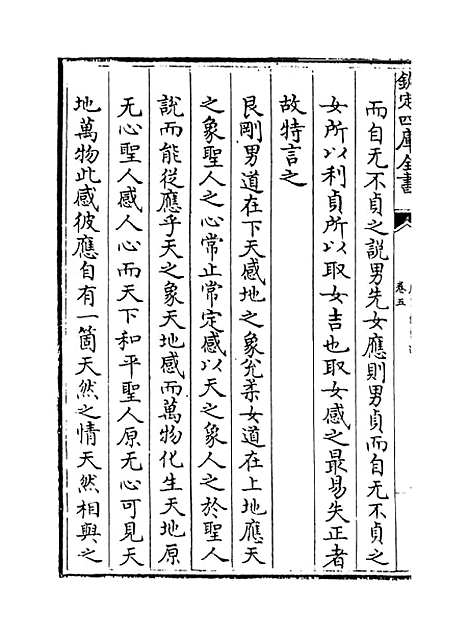 欽定四庫全書
卷五
而自无不貞之說男先女應則男貞而自无不貞之
女所以利貞所以取女吉也取女感之最易失正者
故特言之
艮剛男道在下天感地之象兊柔女道在上地應天
之象聖人之心常止常定感以天之象人之於聖人
說而能從應乎天之象天地感而萬物化生天地原
无心聖人感人心而天下和平聖人原无心可見天
地萬物此感彼應自有一箇天然之情天然相與之